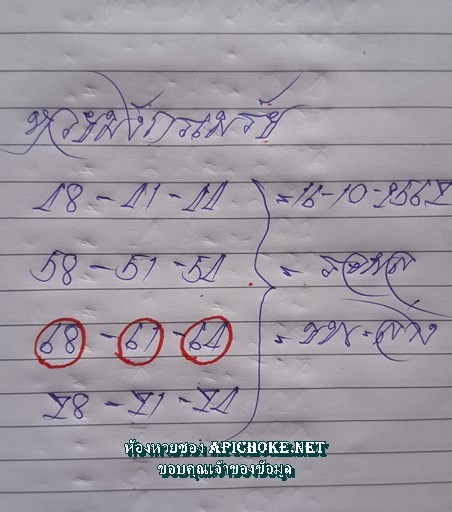 หวยมังกรเมรัย
48 - 41 - 44 = 16-10-2567
58 - 51 - 54 =
68 - 61 - 64 = บน = ล่าง
78 - 71 - 74
ห้องหวยซอง APICHOKE.NET
ขอบคุณเจ้าของข้อมูล